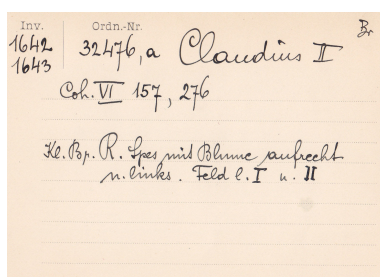 Inv. Ordn.-Nr. Br
1642 32476,a Claudius II
1643
Coh. VI 157, 276
Kl. Br. R. Spes mit Blume aufrecht
n. links. Feld l. I u. II